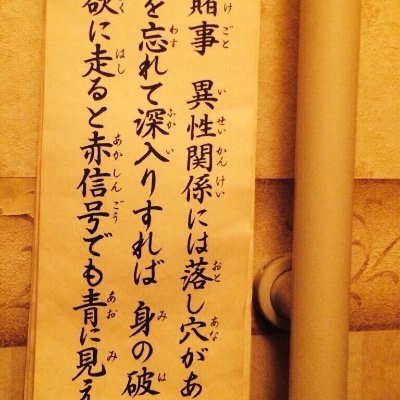 賭事 異性関係には落し穴があ
を忘れて深入りすれば 身の破
欲に走ると赤信号でも青に見え